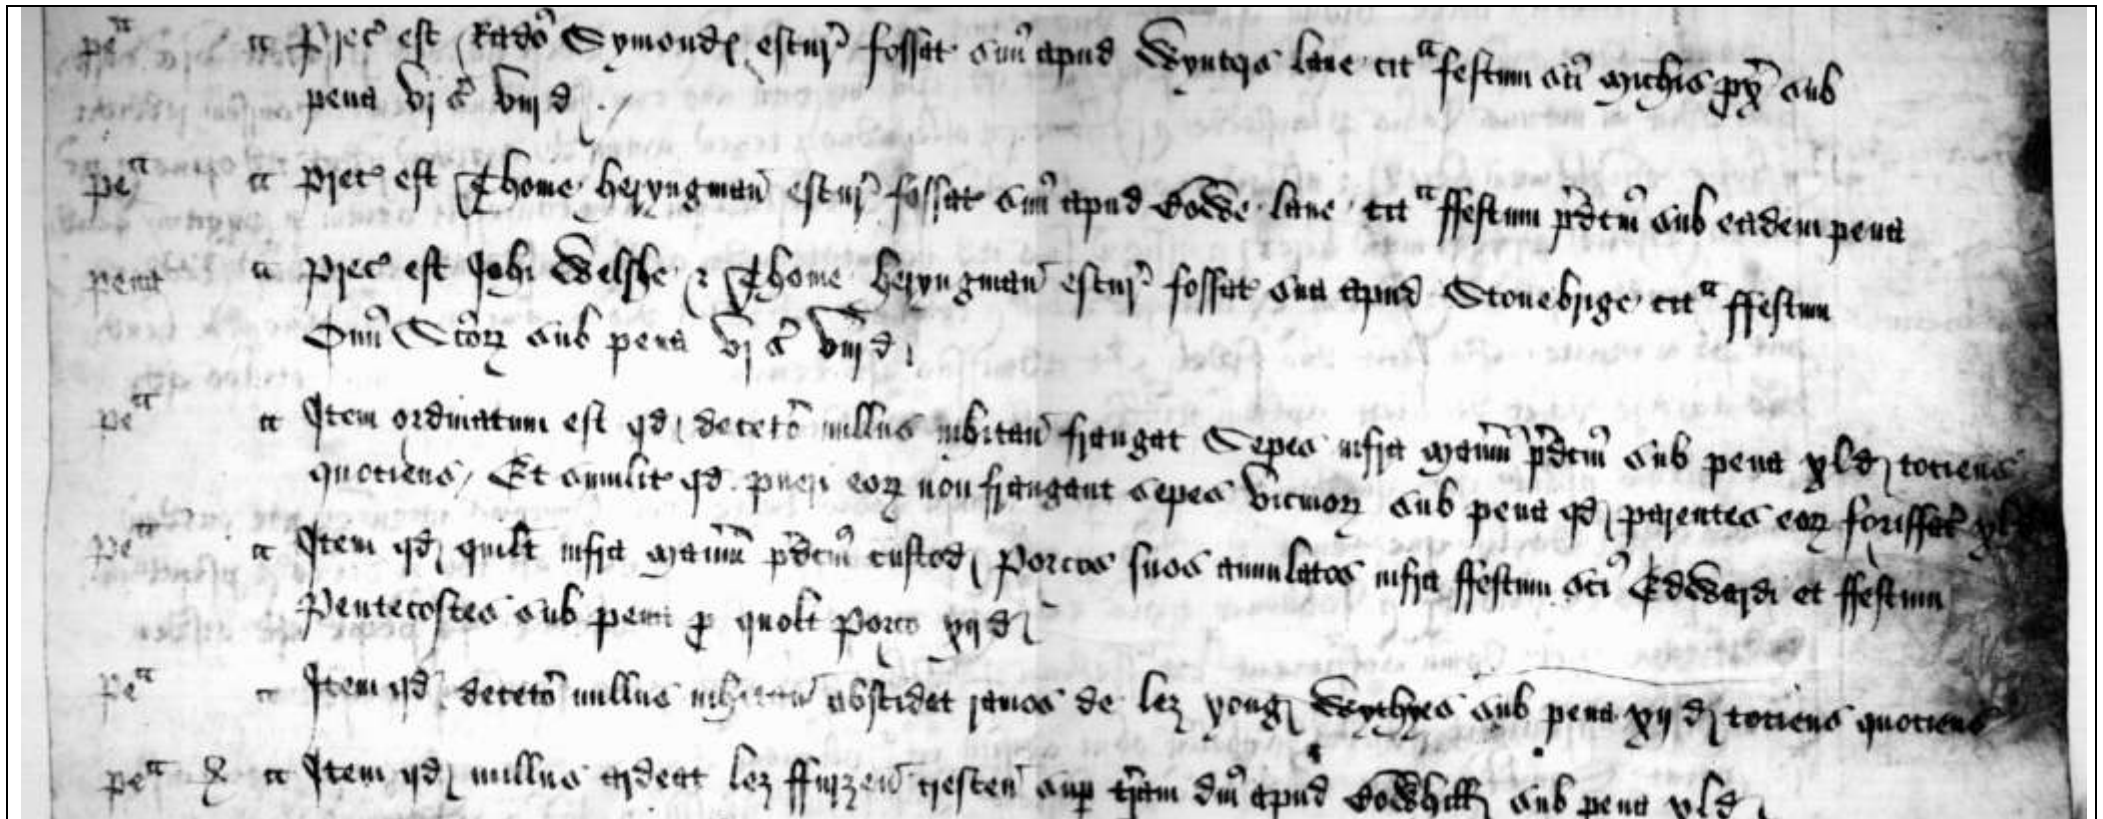 pe^a a Prec^o est Rado Symond escur fossat suu apud Wyntes lane cit^a festum sci Michis px sub
pena vj s viij d
pe^a a Prec^o est Thome heryngman escur fossat suu apud Cowe lane cit^a ffestum pdcm sub eadem pena
pena a Prec^o est Johi Welshe & Thome heryngman escur fossat sua apud Stonebrige cit^a ffestum
Omi Scor sub pena vj s viij d
pe^a a Item ordinatum est qd deceto nullus inhitan frangat Sepes infra Manm pdcm sub pena xl d tociens
quociens / Et similit qd pueri eor non frangant sepes vicinor sub pena qd parentes eor foriffac xl
pe^a a Item qd quilt infra Manm pdcm custod Porcos suos anulatos infra ffestum sci Edwardi et ffestum
Pentecostes sub pena p quolt Porco xij d
pe^a a Item qd deceto nullus inhitan abscidat ramos de lez yong Wythyes sub pena xij d tociens quociens
pe^a a Item qd nullus ardeat lez ffyrzen crescen sup tram dni apud Cowhill sub pena xl d